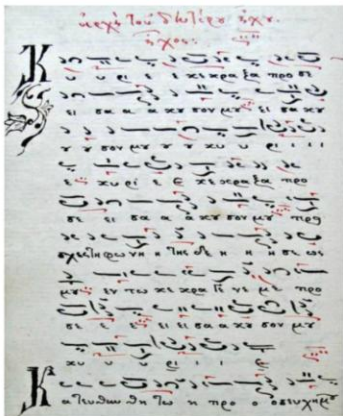 ἀρχὴ τοῦ δευτέρου ἤχου.
ἦχος
Κ υ υ ρι ε ε κε κρα ξα προ σε
ει σα α α κυ σον μȣ ει σα κȣ
ȣ ȣ σον μȣ ȣ κυ υ ρι ι ι
ε κυ ρι ε ε κε κρα ξα προ
σε ει σα α α κȣ σον μȣ προ
σχες τη φω νη η της δε η η η σε ως
μȣ εν τω κε κρα γε ναι με προ
σε ε ε ει σα α κȣ σον μȣ
κυ υ υ ρι ι ε
Κ α τευ θυν θη τω η προ ο σευ χη μȣ